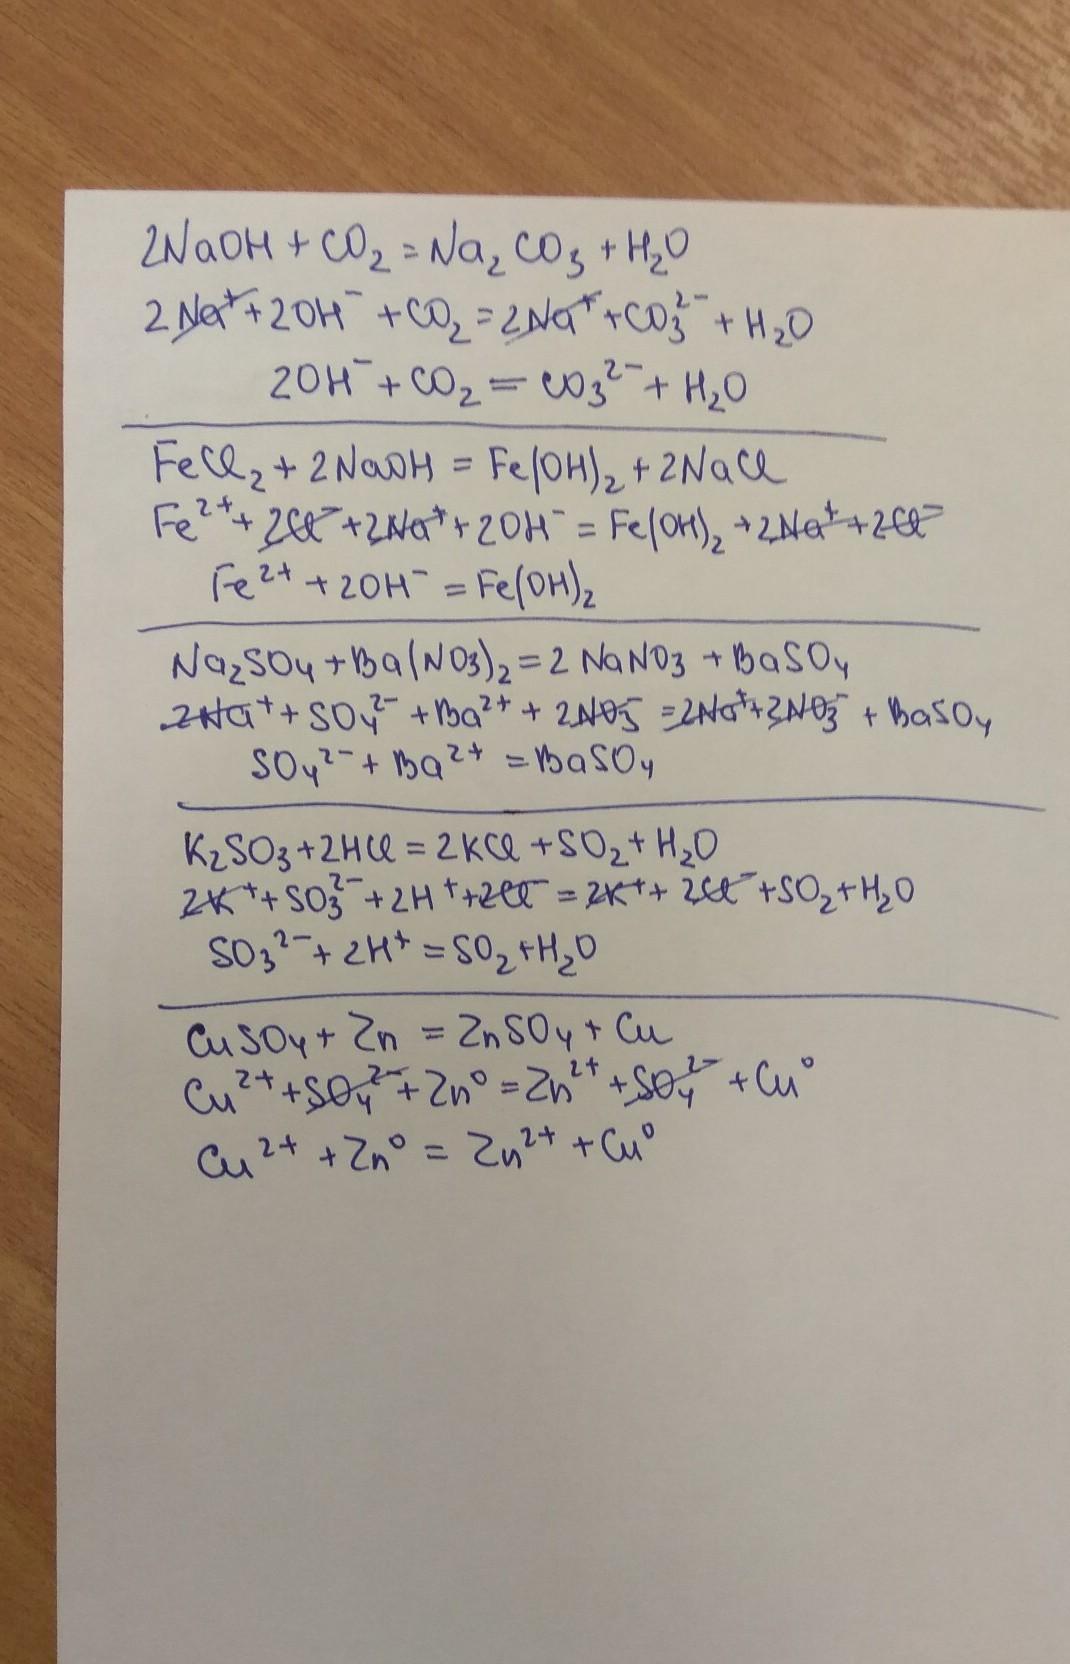 2NaOH + CO₂ = Na₂CO₃ + H₂O
2Na⁺ + 2OH⁻ + CO₂ = 2Na⁺ + CO₃²⁻ + H₂O
2OH⁻ + CO₂ = CO₃²⁻ + H₂O
FeCl₂ + 2NaOH = Fe(OH)₂ + 2NaCl
Fe²⁺ + 2Cl⁻ + 2Na⁺ + 2OH⁻ = Fe(OH)₂ + 2Na⁺ + 2Cl⁻
Fe²⁺ + 2OH⁻ = Fe(OH)₂
Na₂SO₄ + Ba(NO₃)₂ = 2NaNO₃ + BaSO₄
2Na⁺ + SO₄²⁻ + Ba²⁺ + 2NO₃⁻ = 2Na⁺ + 2NO₃⁻ + BaSO₄
SO₄²⁻ + Ba²⁺ = BaSO₄
K₂SO₃ + 2HCl = 2KCl + SO₂ + H₂O
2K⁺ + SO₃²⁻ + 2H⁺ + 2Cl⁻ = 2K⁺ + 2Cl⁻ + SO₂ + H₂O
SO₃²⁻ + 2H⁺ = SO₂ + H₂O
CuSO₄ + Zn = ZnSO₄ + Cu
Cu²⁺ + SO₄²⁻ + Zn⁰ = Zn²⁺ + SO₄²⁻ + Cu⁰
Cu²⁺ + Zn⁰ = Zn²⁺ + Cu⁰